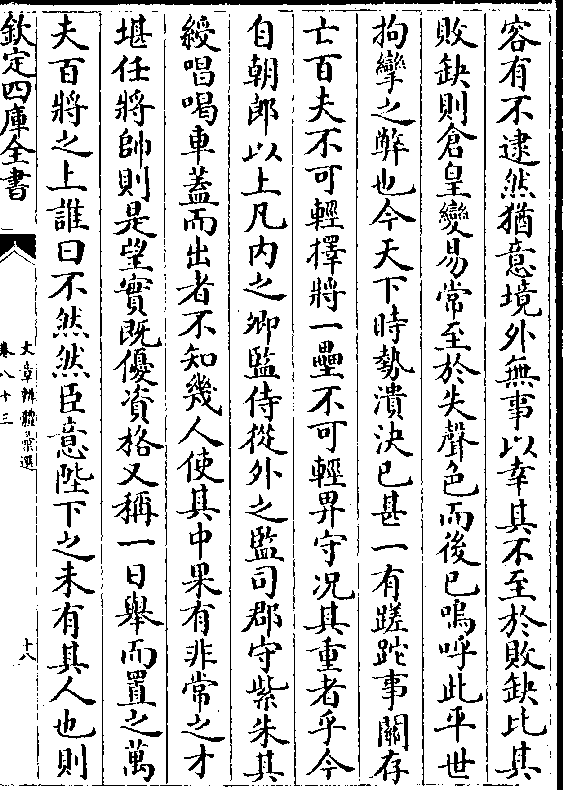 容有不逮然猶意境外無事以幸其不至於敗缺比其
敗缺則倉皇變易常至於失聲色而後已嗚呼此平世
拘攣之弊也今天下時勢潰決已甚一有蹉跎事關存
亡百夫不可輕擇將一壘不可輕畀守况其重者乎今
自朝郎以上凡内之卿監侍從外之監司郡守紫朱其
綬唱喝車蓋而出者不知幾人使其中果有非常之才
堪任將帥則是望實既優資格又稱一日舉而置之萬
夫百將之上誰曰不然然臣意陛下之未有其人也則
欽定四庫全書
文章辨體彙選
卷八十三
十八